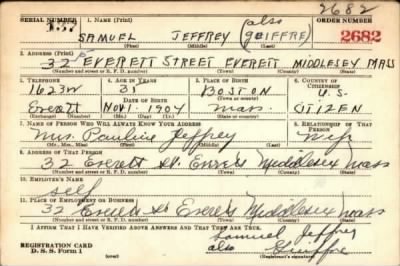 2682
SERIAL NUMBER 1. NAME (Print) also ORDER NUMBER
SAMUEL JEFFREY (GEIFFRE) 2682
(First) (Middle) (Last)
2. ADDRESS (Print)
32 EVERETT STREET EVERETT MIDDLESEY MASS
(Number and street or R. F. D. number) (Town) (County) (State)
3. TELEPHONE 4. AGE IN YEARS 5. PLACE OF BIRTH 6. COUNTRY OF CITIZENSHIP
1623W 35 BOSTON U.S.
DATE OF BIRTH (Town or county)
Everett Nov. 1. 1904 Mass. CITIZEN
(Exchange) (Number) (Mo.) (Day) (Yr.) (State or country)
7. NAME OF PERSON WHO WILL ALWAYS KNOW YOUR ADDRESS 8. RELATIONSHIP OF THAT PERSON
Mrs. Pauline Jeffrey Wife
(Mr., Mrs., Miss) (First) (Middle) (Last)
9. ADDRESS OF THAT PERSON
32 Everett St. Everett Middlesex Mass
(Number and street or R. F. D. number) (Town) (County) (State)
10. EMPLOYER'S NAME
self
11. PLACE OF EMPLOYMENT OR BUSINESS
32 Everett St Everett Middlesex Mass
(Number and street or R. F. D. number) (Town) (County) (State)
I AFFIRM THAT I HAVE VERIFIED ABOVE ANSWERS AND THAT THEY ARE TRUE.
Samuel Jeffrey
REGISTRATION CARD also
D. S. S. Form 1 (Registrant's signature)